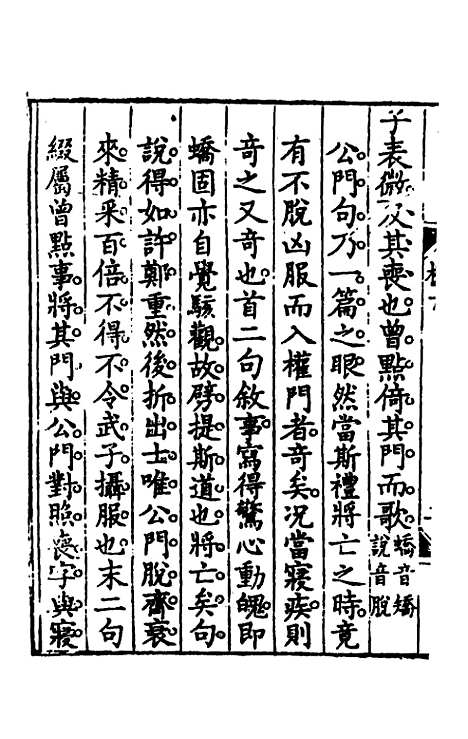 子表微及其喪也曾點倚其門而歌蟜音矯說音脫
公門句乃一篇之眼然當斯禮將亡之時竟
有不脫凶服而入權門者奇矣况當寢疾則
奇之又奇也首二句敘事寫得驚心動魄即
蟜固亦自覺駭觀故劈提斯道也將亡矣句
說得如許鄭重然後折出士唯公門脫齊衰
來精采百倍不得不令武子攝服也末二句
綴屬曾點事將其門與公門對照喪字與寢